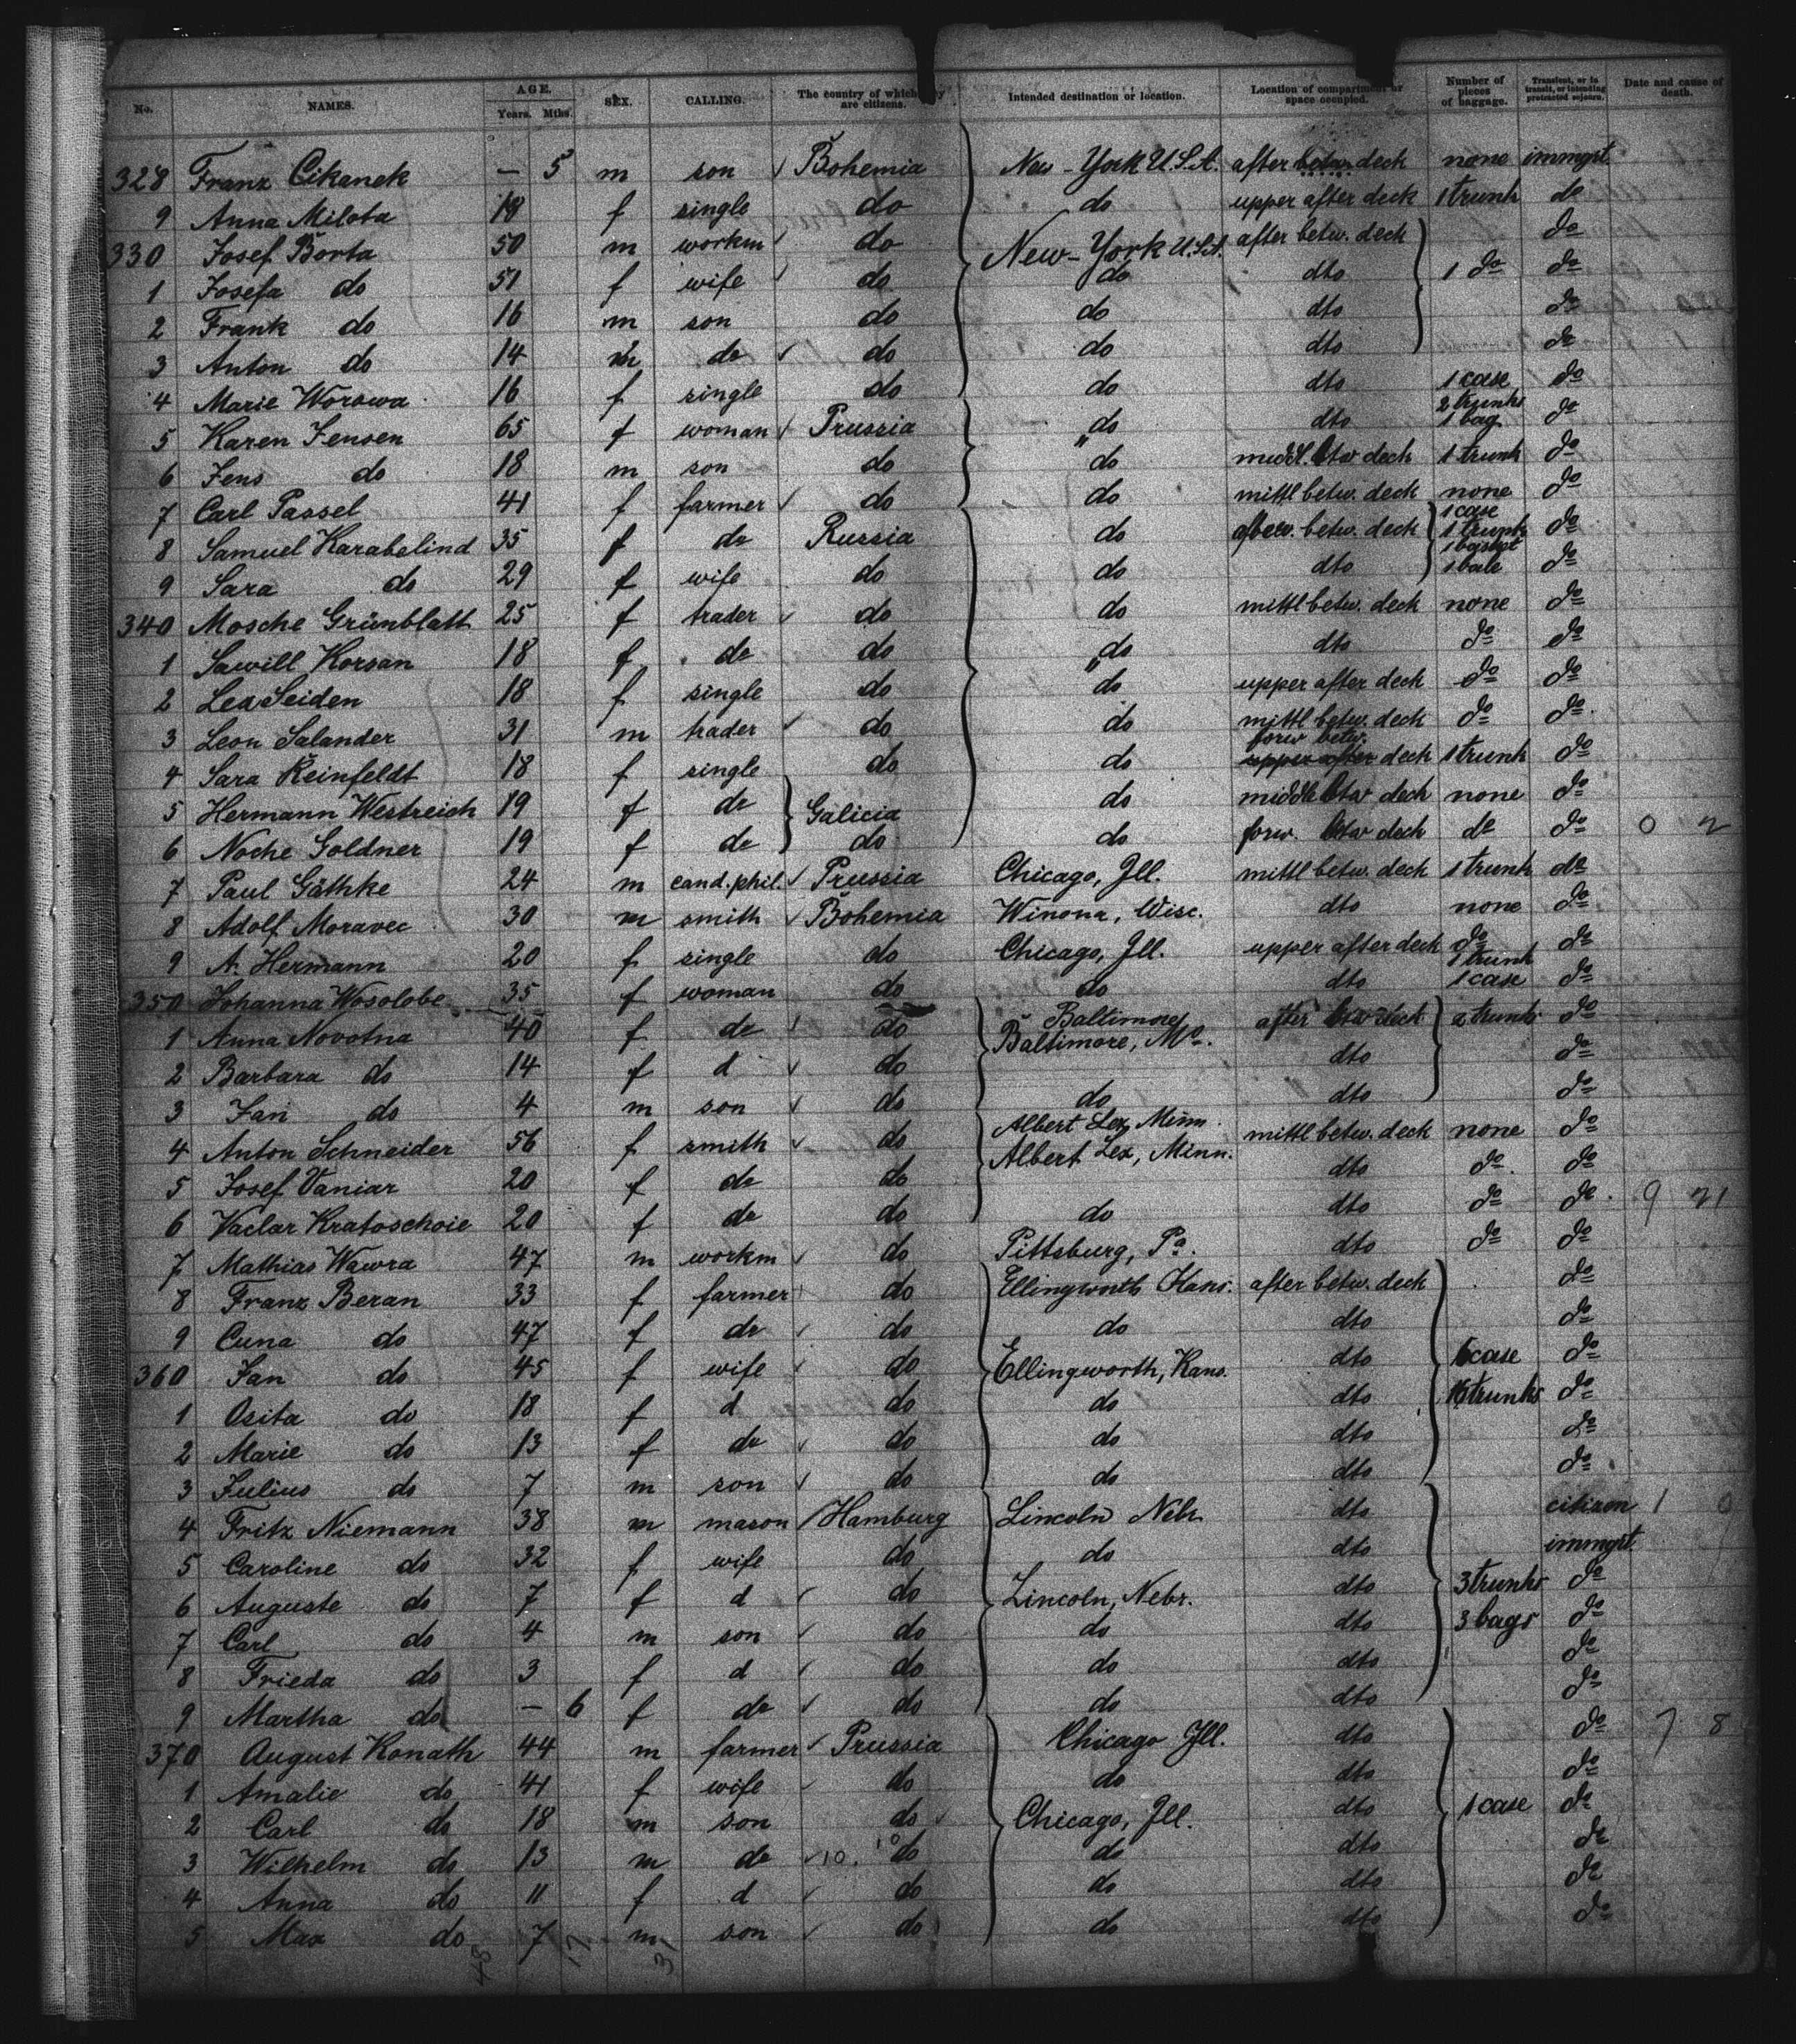 No. NAMES. AGE. Years. Mths. SEX. CALLING. The country of which they are citizens. Intended destination or location. Location of compartment or space occupied. Number of pieces of baggage. Transient, or in transit, or intending protracted sojourn. Date and cause of death.
328 Franz Cikanek — 5 m son Bohemia New-York U.S.A. after betw. deck none immgrt
9 Anna Milota 18 f single do do upper after deck 1 trunk do
330 Josef Borta 50 m workm do New-York U.S.A. after betw. deck do
1 Josefa do 51 f wife do do dto 1 do do
2 Frank do 16 m son do do dto do
3 Anton do 14 m do do do dto do
4 Marie Worowa 16 f single do do dto 1 case do
5 Karen Jensen 65 f woman Prussia do dto 2 trunks 1 bag do
6 Jens do 18 m son do do middl. btw deck 1 trunk do
7 Carl Passel 41 f farmer do do mittl betw. deck none do
8 Samuel Karabelind 35 f do Russia do betw. deck 1 case 1 trunk do
9 Sara do 29 f wife do do dto 1 basket 1 bale do
340 Mosche Grünblatt 25 f trader do do mittl betw. deck none do
1 Sawill Korsan 18 f do do do dto do do
2 Lea Seiden 18 f single do do upper after deck do do
3 Leon Salander 31 m trader do do mittl betw. deck do do
4 Sara Reinfeldt 18 f single do do forw betw. upper after deck 1 trunk do
5 Hermann Westreich 19 f do Galicia do middle btw deck none do
6 Noche Goldner 19 f do do do forw. btw deck do do 0 2
7 Paul Gäthke 24 m cand. phil. Prussia Chicago, Ill. mittl betw. deck 1 trunk do
8 Adolf Moravec 30 m smith Bohemia Winona, Wisc. dto none do
9 A. Hermann 20 f single do Chicago, Ill. upper after deck do do
350 Johanna Wosolobe 35 f woman do do dto 1 trunk 1 case do
1 Anna Novotna 40 f do do Baltimore Baltimore, Md. after btw deck 2 trunks do
2 Barbara do 14 f d do dto do
3 Jan do 4 m son do do dto do
4 Anton Schneider 56 f smith do Albert Lea, Minn. mittl betw. deck none do
5 Josef Vaniar 20 f do do Albert Lea, Minn. dto do do
6 Vaclav Kratoschvie 20 f do do do dto do do 9 21
7 Mathias Wawra 47 m workm do Pittsburg, Pa. dto do do
8 Franz Beran 33 f farmer do Ellingworth Kans. after betw. deck do
9 Cuna do 47 f do do do dto do
360 Jan do 45 f wife do Ellingworth, Kans. dto case do
1 Osita do 18 f d do do dto trunks do
2 Marie do 13 f do do do dto do
3 Julius do 7 m son do do dto do
4 Fritz Niemann 38 m mason Hamburg Lincoln Nebr. dto citizen 1 0
5 Caroline do 32 f wife do do dto immgrt
6 Auguste do 7 f d do Lincoln, Nebr. dto 3 trunks do
7 Carl do 4 m son do do dto 3 bags do
8 Frieda do 3 f d do do dto do
9 Martha do — 6 f do do do dto do
370 August Konath 44 m farmer Prussia Chicago Ill. dto do 7 8
1 Amalie do 41 f wife do do dto do
2 Carl do 18 m son do Chicago, Ill. dto 1 case do
3 Wilhelm do 13 m do 10. 10 do do dto do
4 Anna do 11 f d do do dto do
5 Max do 7 m son do do dto do
48 17 31